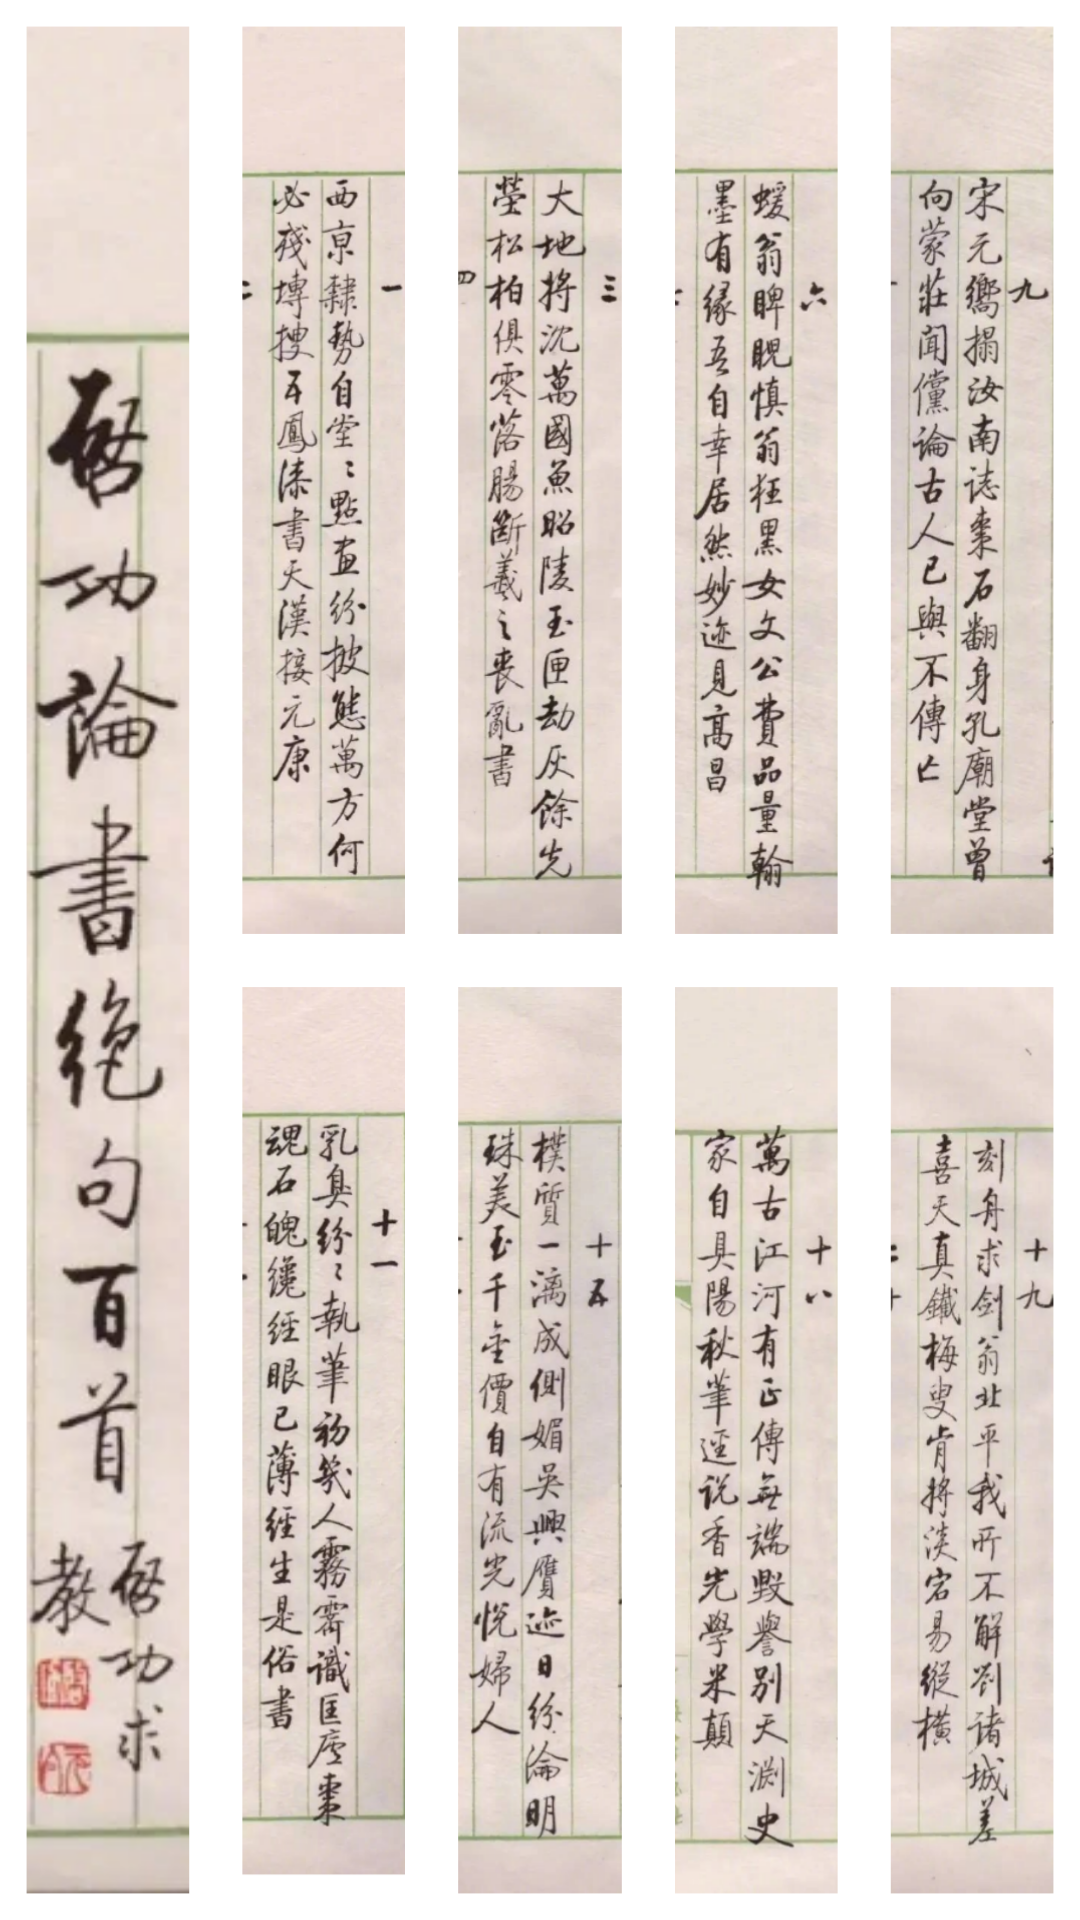 啓功論書絕句百首
啓功求
教
一
西京隸勢自堂〻點畫紛披態萬方何
必殘塼搜五鳳漆書天漢接元康
三
大地將沈萬國魚昭陵玉匣劫灰餘先
塋松柏俱零落腸斷羲之喪亂書
四
六
蝯翁睥睨慎翁狂黑女文公費品量翰
墨有緣吾自幸居然妙迹見高昌
九
宋元嚮搨汝南誌棗石翻身孔廟堂曾
向蒙莊聞儻論古人已與不傳亡
十一
乳臭紛〻執筆初幾人霧霽識匡廬棗
魂石魄纔經眼已薄經生是俗書
十五
樸質一漓成側媚吳興贗迹日紛淪明
珠美玉千金價自有流光悅婦人
十八
萬古江河有正傳無端毀譽別天淵史
家自具陽秋筆逕說香光學米顛
十九
刻舟求劍翁北平我所不解劉諸城差
喜天真鐵梅叟肯將淡宕易縱橫